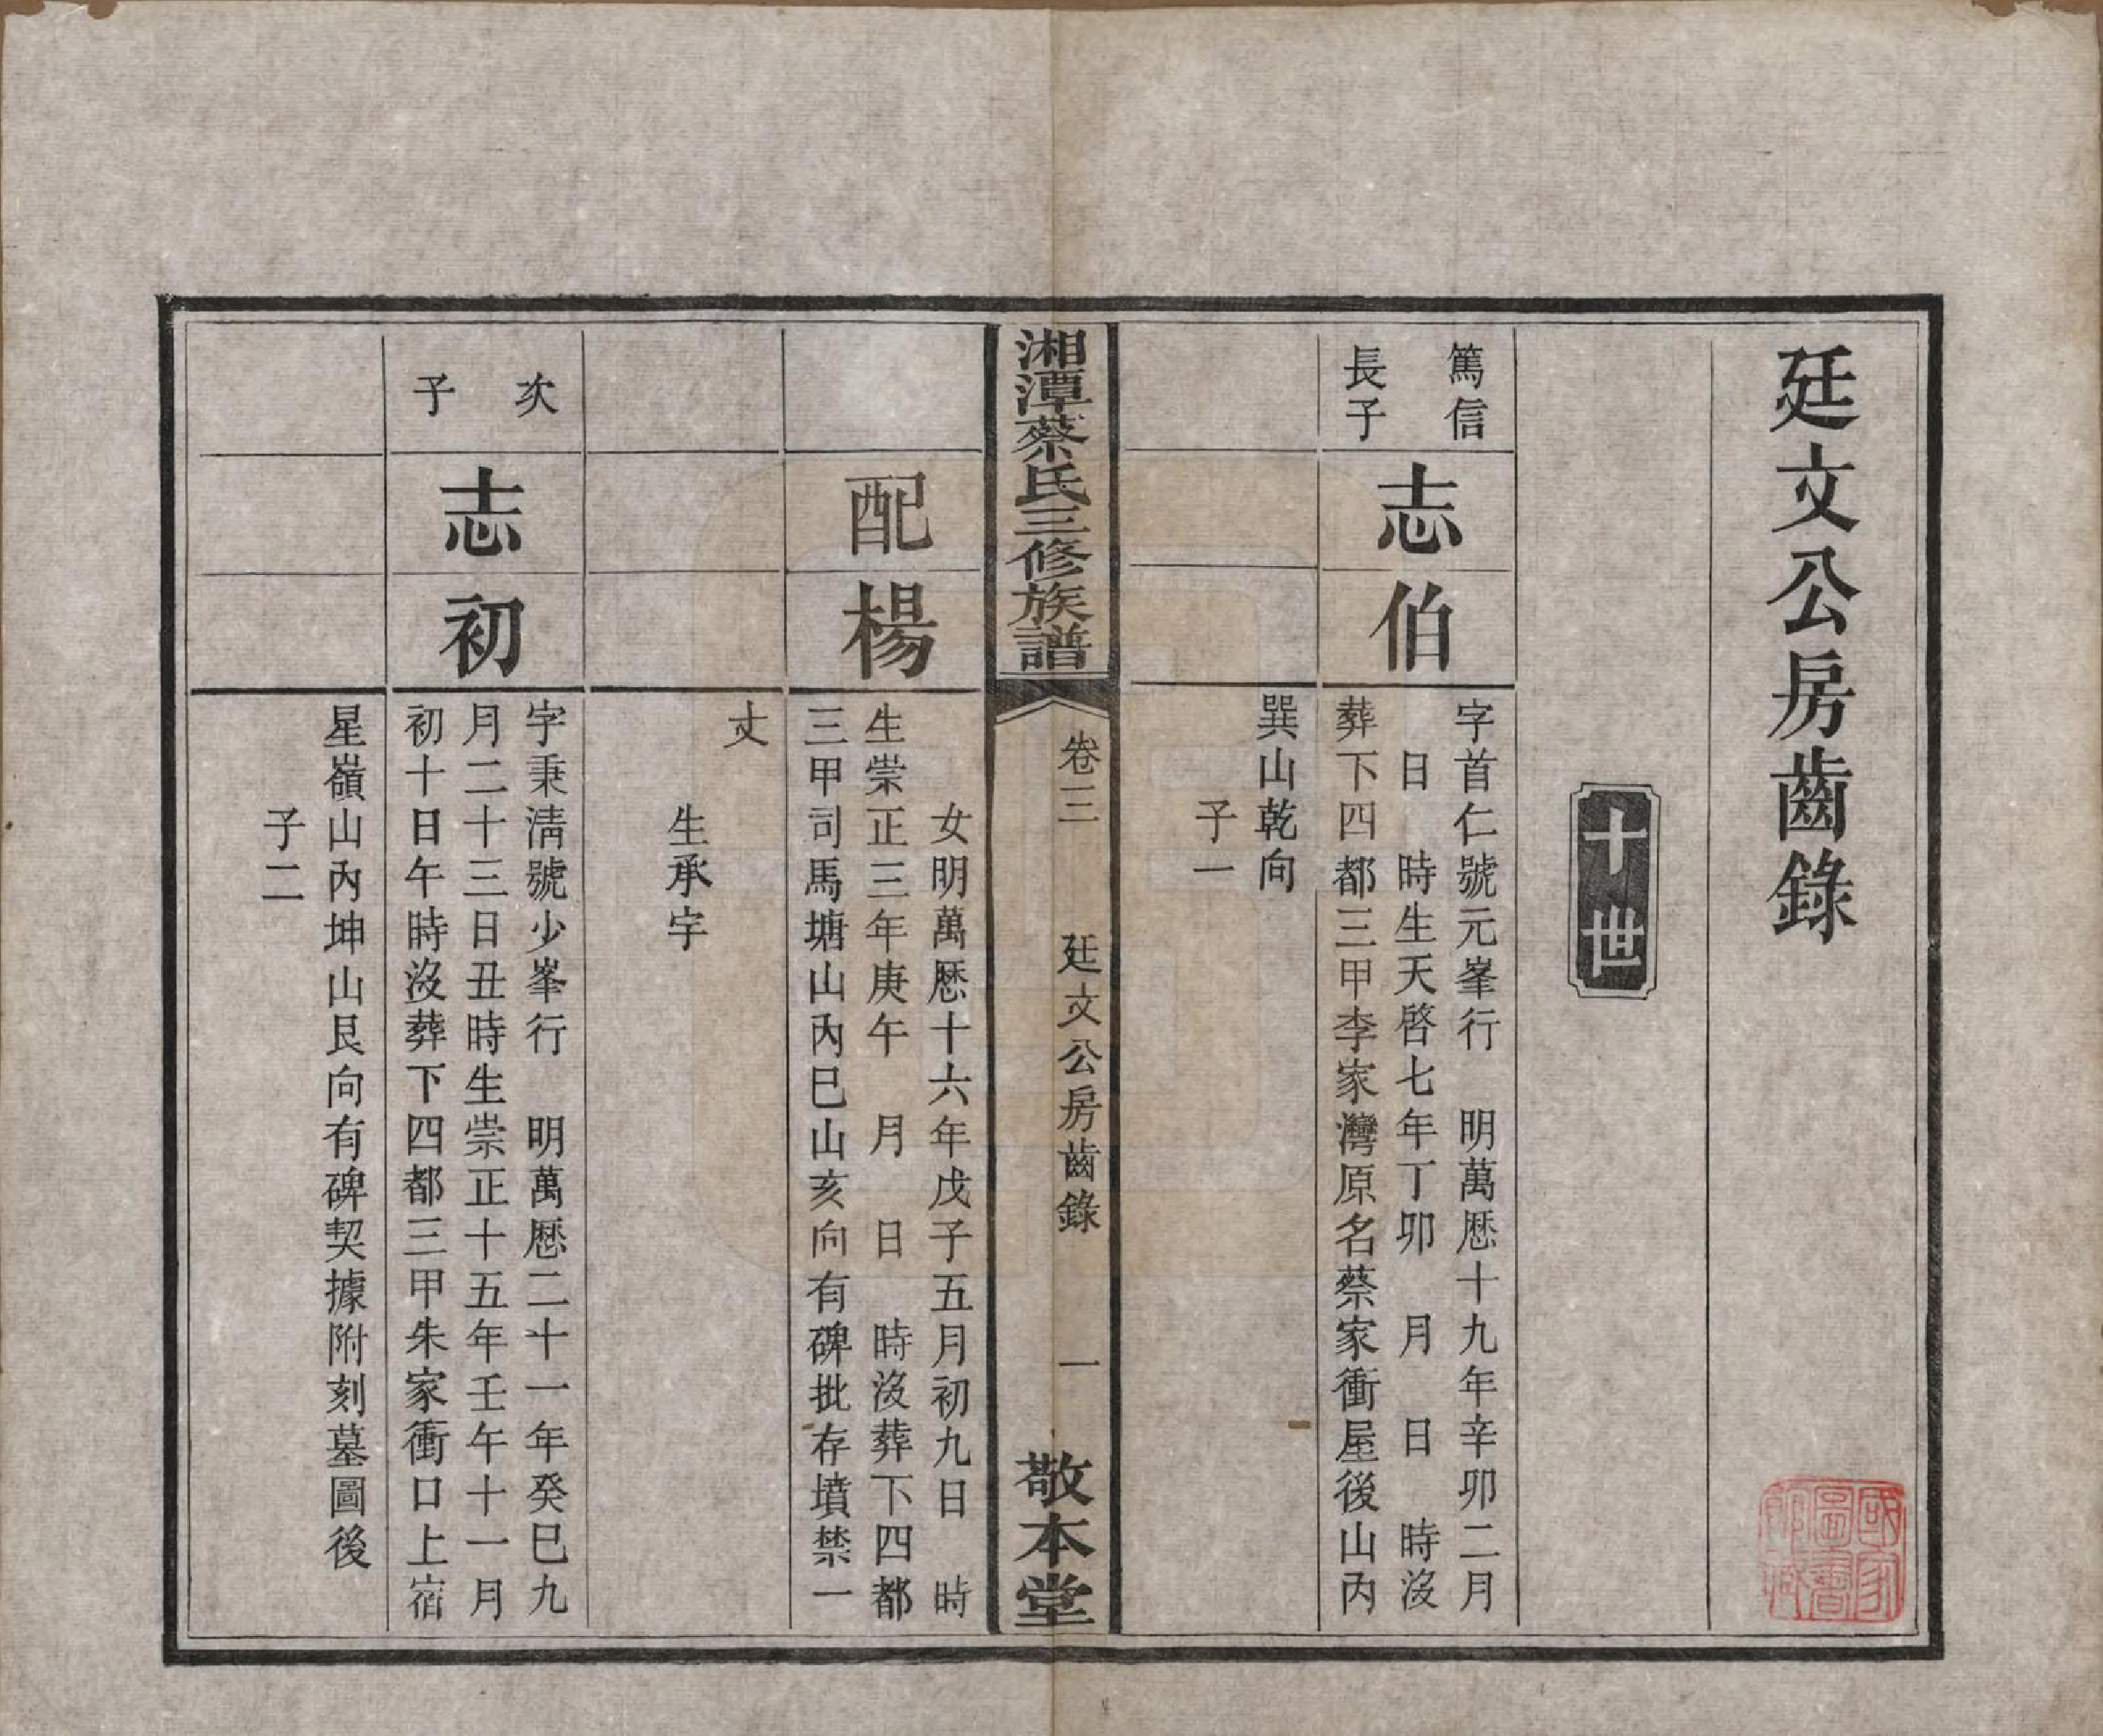 廷文公房齒錄
十世
篤信
長子
志伯
字首仁號元峯行　明萬厯十九年辛卯二月
日　時生天啓七年丁卯　月　日　時沒
葬下四都三甲李家灣原名蔡家衝屋後山內
巽山乾向
子一
湘潭蔡氏三修族譜
卷三　廷文公房齒錄　一
敬本堂
配楊
女明萬厯十六年戊子五月初九日　時
生崇正三年庚午　月　日　時沒葬下四都
三甲司馬塘山內巳山亥向有碑批存墳禁一
丈
生承字
次子
志初
字秉淸號少峯行　明萬厯二十一年癸巳九
月二十三日丑時生崇正十五年壬午十一月
初十日午時沒葬下四都三甲朱家衝口上宿
星嶺山內坤山艮向有碑契據附刻墓圖後
子二
國家
圖書
館藏